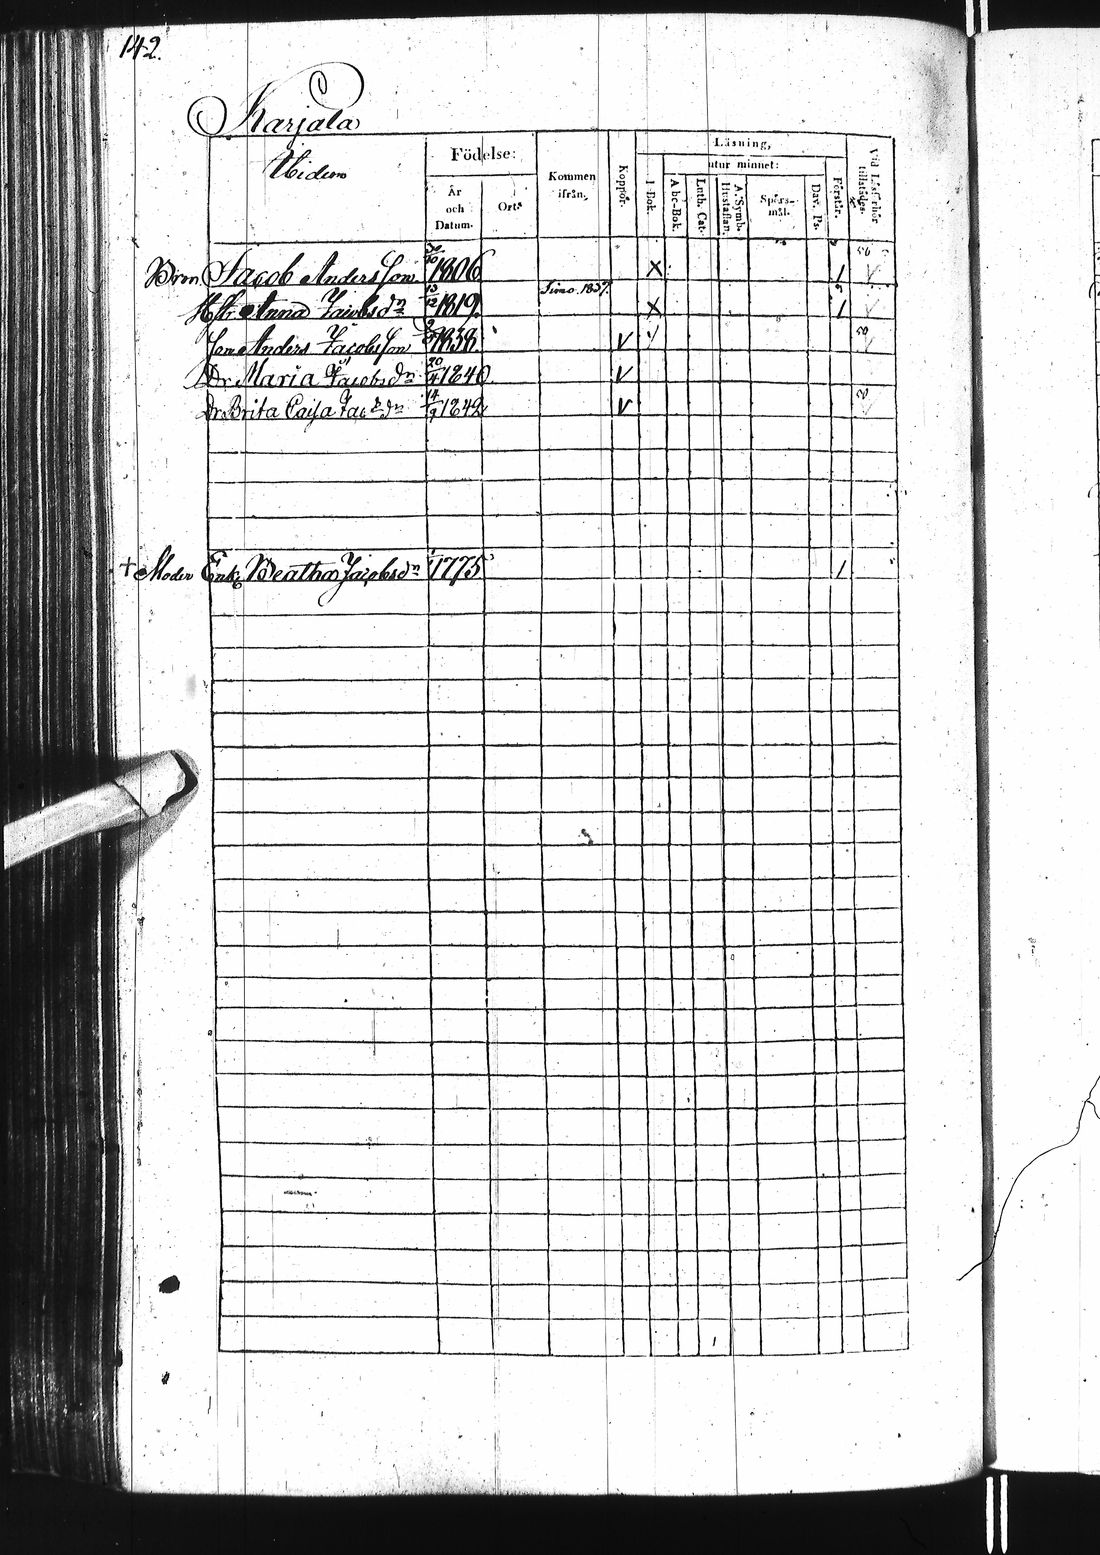 142.
Karjala
Födelse:
År
och
Datum.
Ort.
Kommen
ifrån,
Koppor.
Läsning,
utur minnet:
I Bok.
Abc-Bok.
Luth. Cat.
A. Symb.
Hustaflan.
Spörs-
mål.
Dav. Ps.
Förstår.
Vid Läsförhör
tillstädes.
Jacob Andersson 30/10 1806 X 1
Hu Anna Jacobsdn 13/12 1819. Simo 1837. X 1
Son Anders Jacobsson 1838. V
Dr Maria Jacobsdn 20/4 1840. V
Dr Brita Caisa Jacbdn 14/9 1842 V
+ Moder Enk. Beatha Jacobsdn 1775 1